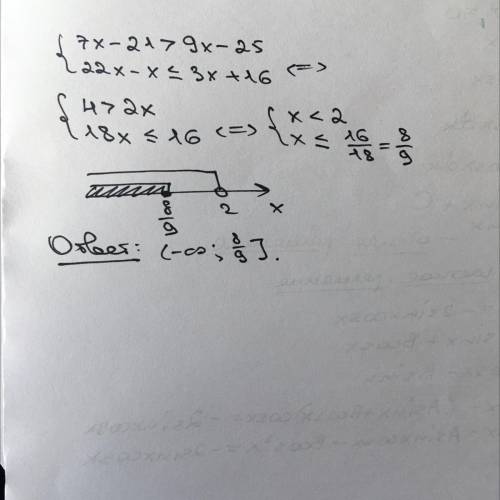 { 7x − 21 > 9x − 25
{ 22x − x ≤ 3x + 16 <=>
{ 4 > 2x
{ 18x ≤ 16 <=> { x < 2
{ x ≤ 16/18 = 8/9
8/9 2 x
Ответ: (−∞; 8/9].